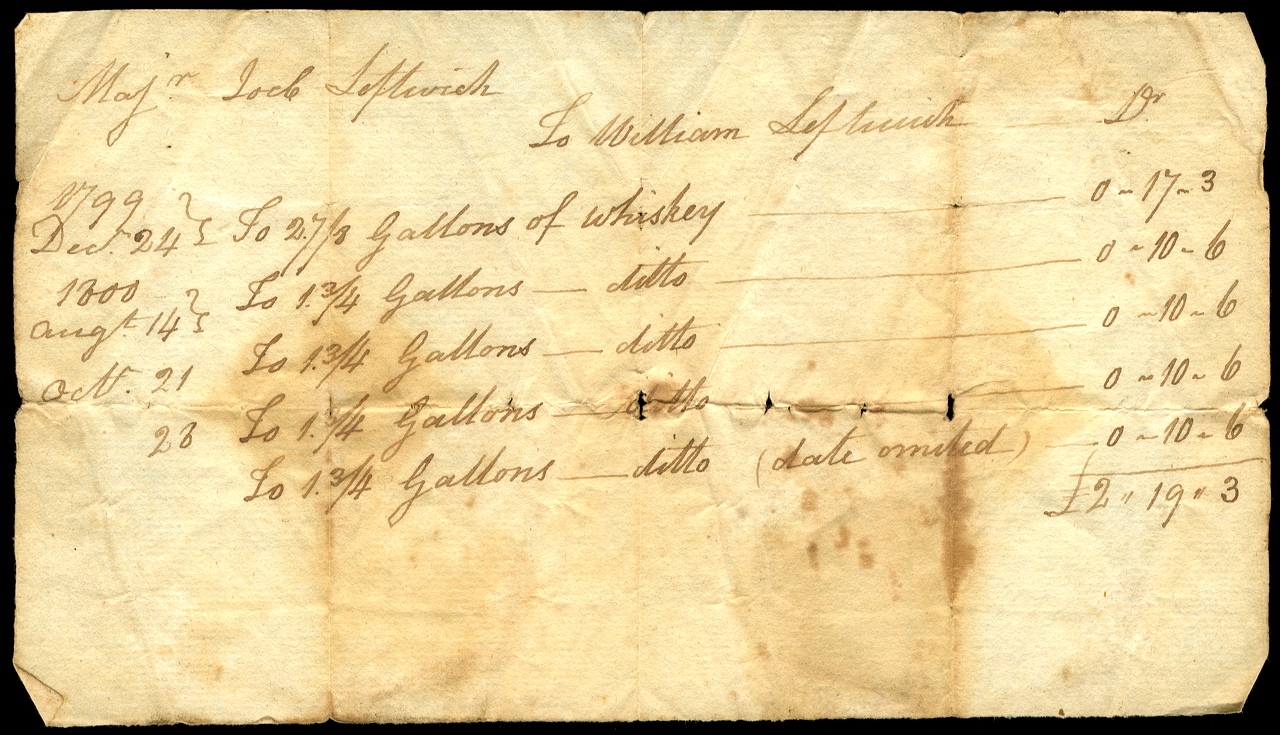 Majr. Joeb Leftwich
To William Leftwich — Dr
1799
Decr. 24 } To 2.7/8 Gallons of whiskey — 0 - 17 - 3
1800
Augt 14 } To 1.3/4 Gallons — ditto — 0 - 10 - 6
Octr. 21 To 1.3/4 Gallons — ditto — 0 - 10 - 6
28 To 1.3/4 Gallons — ditto — 0 - 10 - 6
To 1.3/4 Gallons — ditto (date omited) — 0 - 10 - 6
£2 " 19 " 3